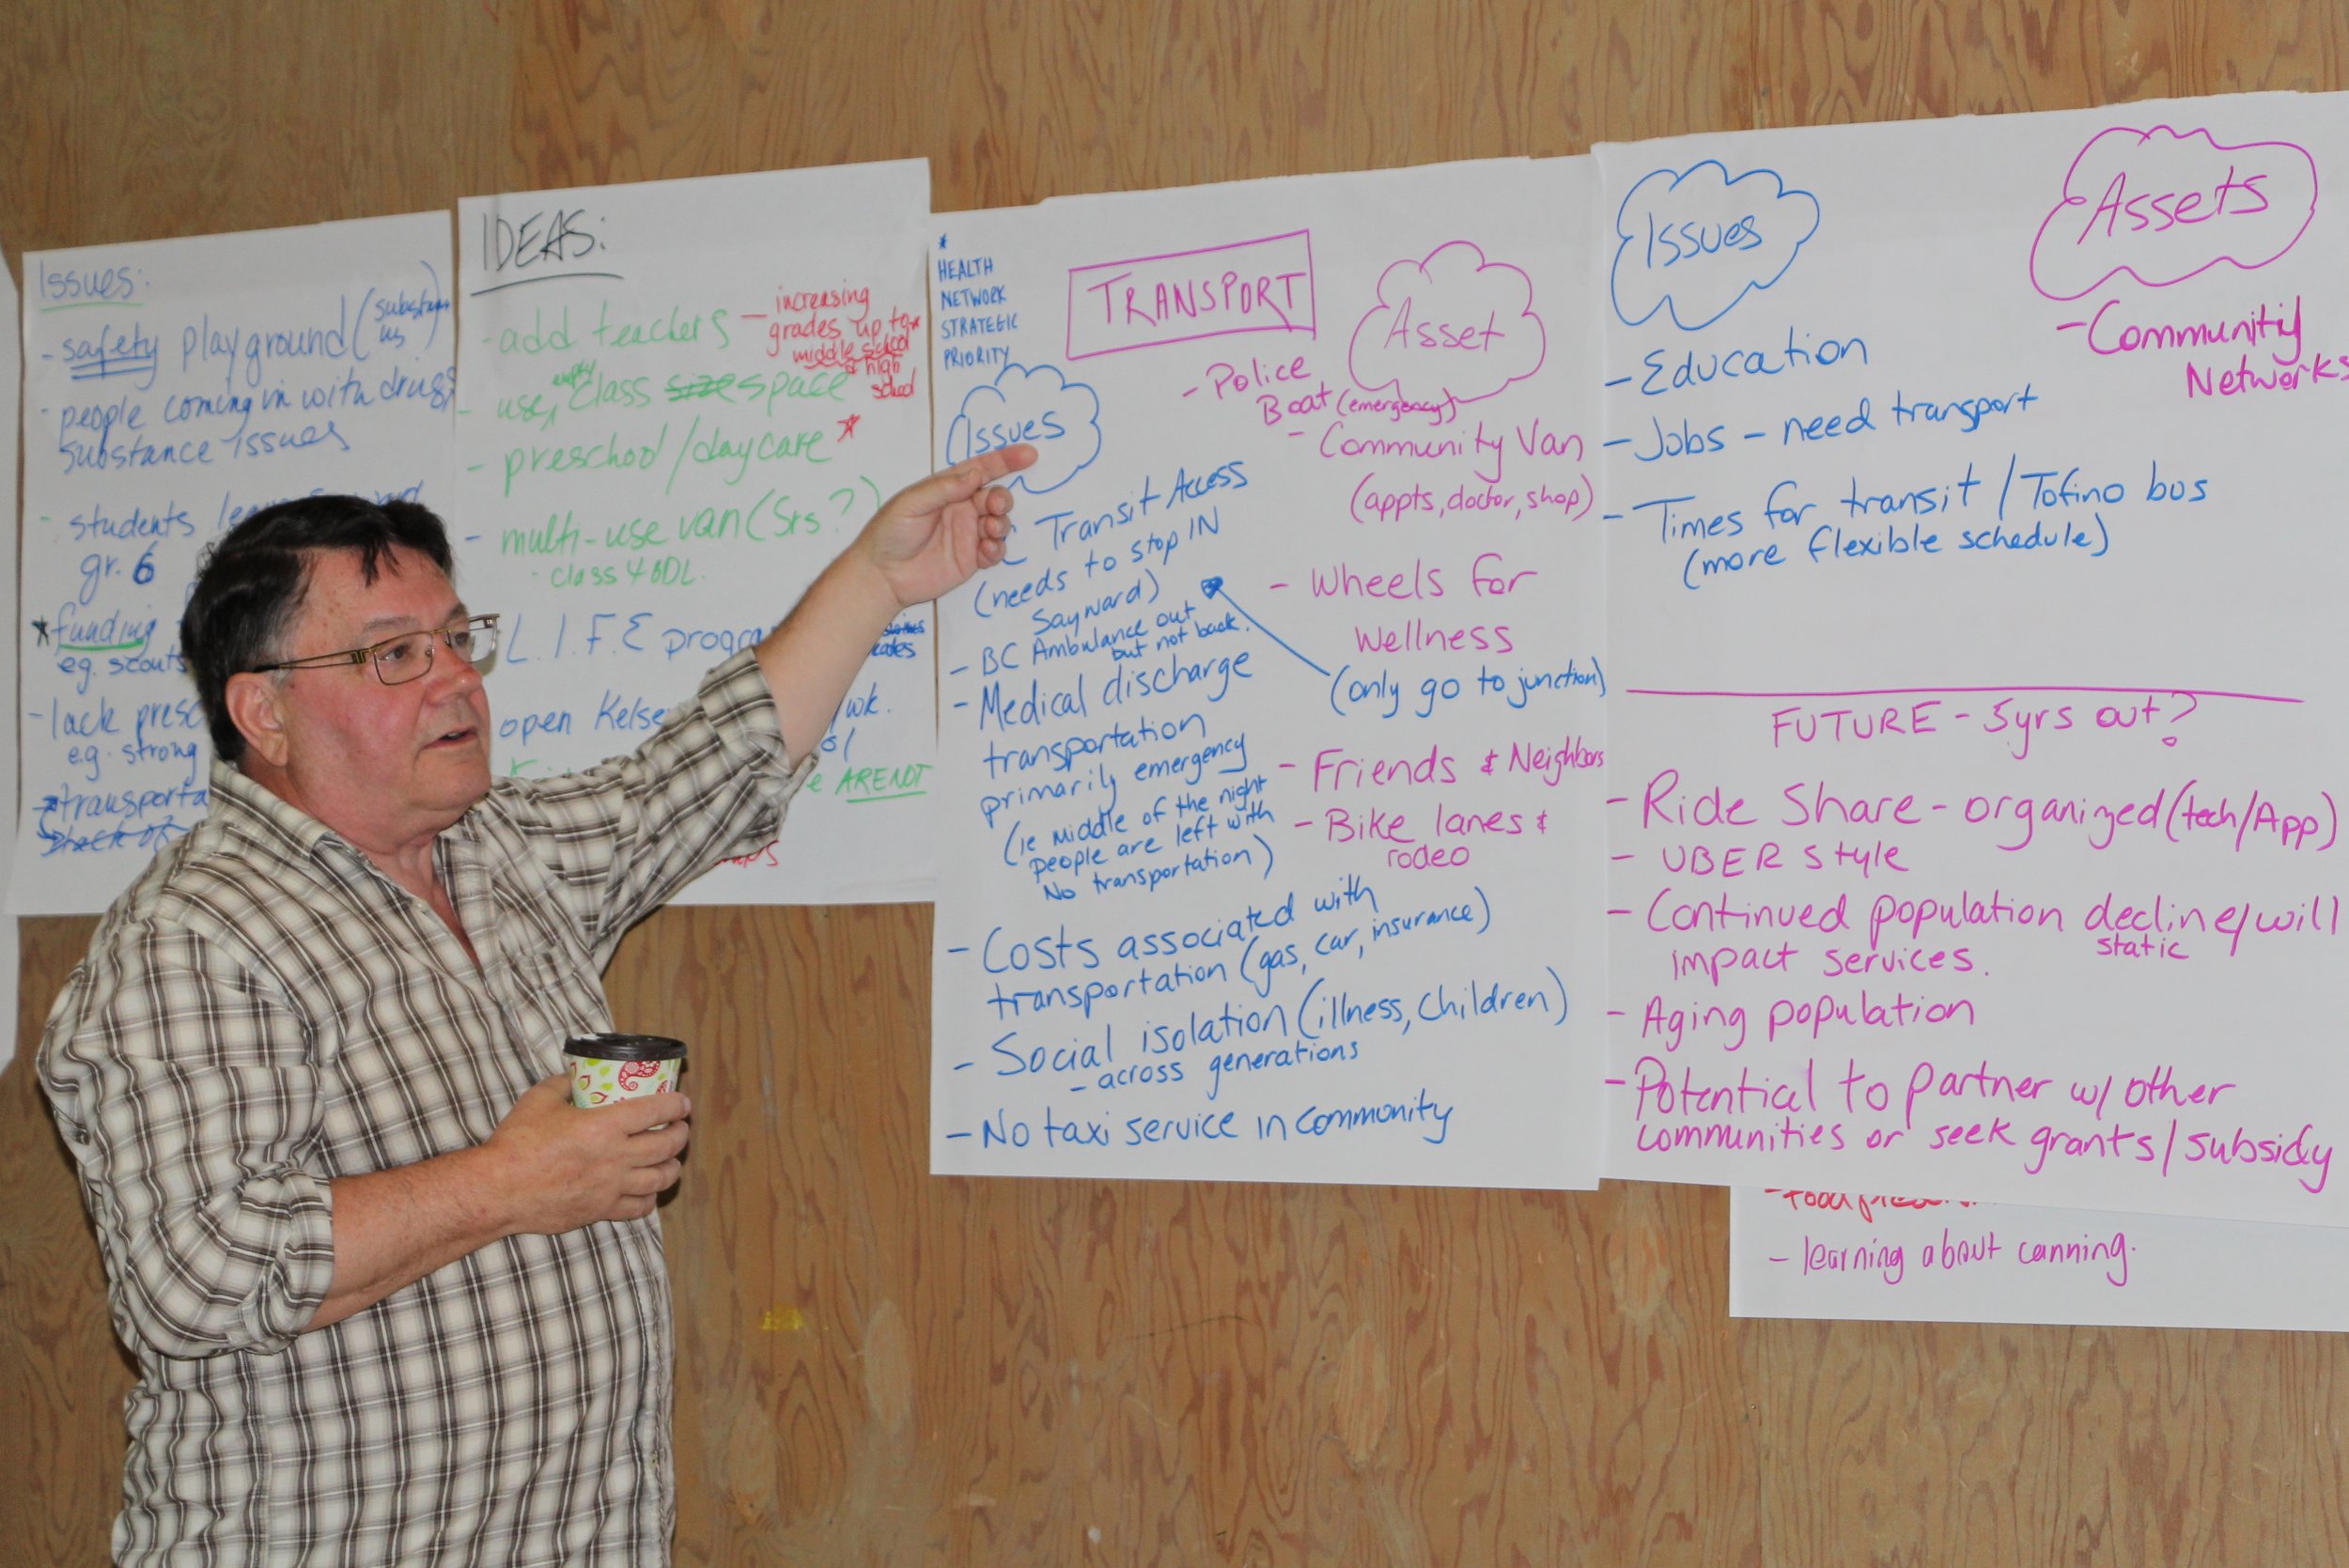 Issues:
- safety playground (
- people coming in with drugs
substance issues
- students
gr. 6
* funding
e.g. scouts
- lack
e.g. strong
IDEAS:
- add teachers — increasing
grades up to *
middle school
& high
school
- use empty class size space
- preschool/daycare *
- multi-use van (Srs?)
- class 4 BDL.
L.I.F.E
open
/wk.
ARENDT
*
HEALTH
NETWORK
STRATEGIC
PRIORITY
TRANSPORT
Issues
Transit Access
(needs to stop IN
Sayward)
- BC Ambulance out
but not back.
- Medical discharge
transportation
primarily emergency
(ie middle of the night
People are left with
No transportation)
- Costs associated with
transportation (gas, car, insurance)
- Social isolation (illness, children)
- across generations
- No taxi service in community
Asset
- Police
Boat (emergency)
- Community Van
(appts, doctor, shop)
- Wheels for
Wellness
(only go to junction)
- Friends & Neighbors
- Bike lanes &
rodeo
Issues
- Education
- Jobs - need transport
- Times for transit / Tofino bus
(more flexible schedule)
Assets
- Community
Networks
FUTURE - 5yrs out?
- Ride Share - organized (tech/App)
- UBER style
- Continued population decline/will
static
impact services.
- Aging population
- Potential to partner w/ other
communities or seek grants/subsidy
- learning about canning.